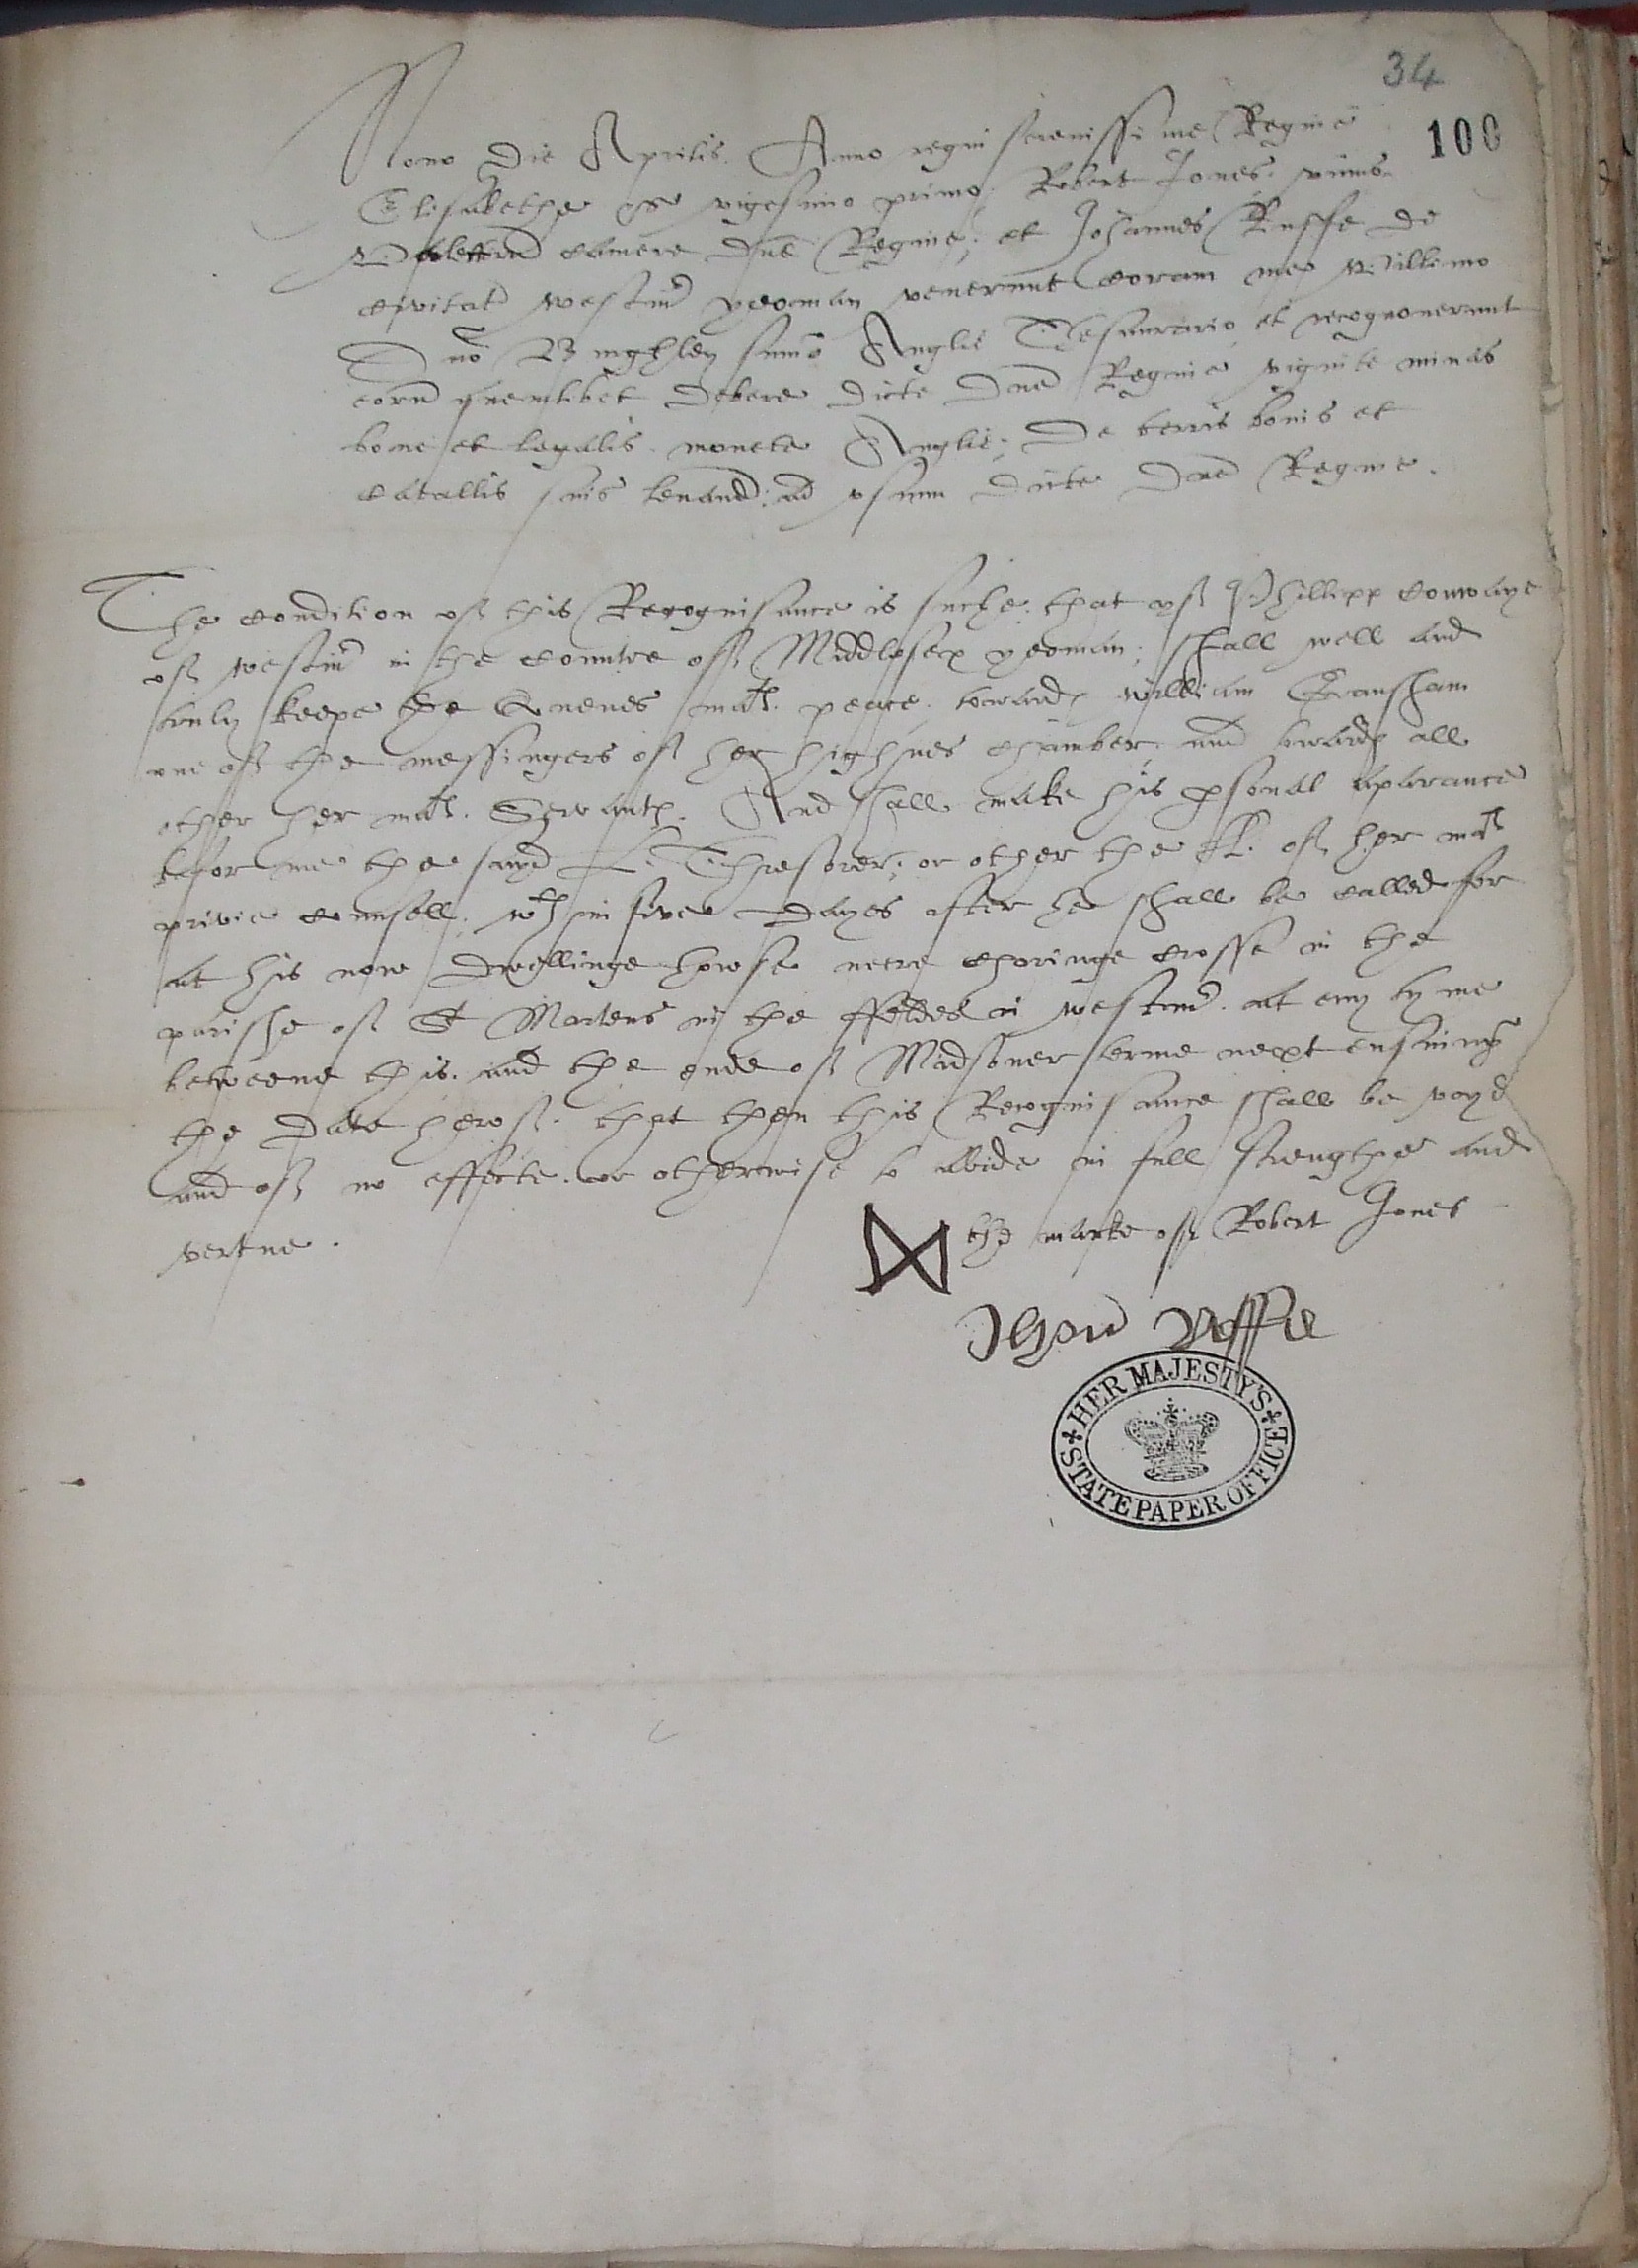 34
100
Nono die Aprilis. Anno regni serenissime Regine
Elisabethe &c vigesimo primo. Robert Jones. unus
Valettorum camere dne Regine; et Johannes Ruffe de
civitat westmr yeoman venerunt coram me Willimo
Dno Burghley sumo Anglie Thesaurario et recognoverunt
eorum quemlibet debere dicte Dne Regine viginte minas
bone et legalis monete Anglie; De terris bonis et
catallis suis levand: ad usum dicte Dne Regine.
The condition off this Recognisance is suche. that yff Phillipp Conwaye
off westmr in the Countie off Middlesex yeoman; shall well and
truly keepe the Quenes matts. peace. towards William
one off the messingers off her highnes chamber; and towards all
other her matts. Servants. And shall make his psonal aparance
befor me the sayd L. Thresorer; or other the LL. off her matts
privie Counsell; wthin five dayes after he shall be called for
at his now dwellinge howse neere Charinge Crosse in the
parishe off St Martens in the ffeldes in westmr. at eny tyme
betweene this. and the ende off Midsomer terme next ensuing
the date heroff. that then this Recognisance shall be voyd
and off no effecte. or otherwise to abide in full strengthe and
vertue.
the marke off Robert Jones
Jhon Roffe
HER MAJESTY'S
STATE PAPER OFFICE